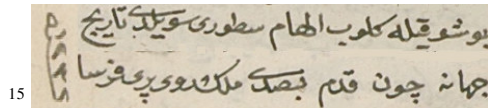 بو شوقیله کلوب الهام سطوری سویلدی تاریخ
جهانه چون قدم بصدی ملک روی پری فرسا
15